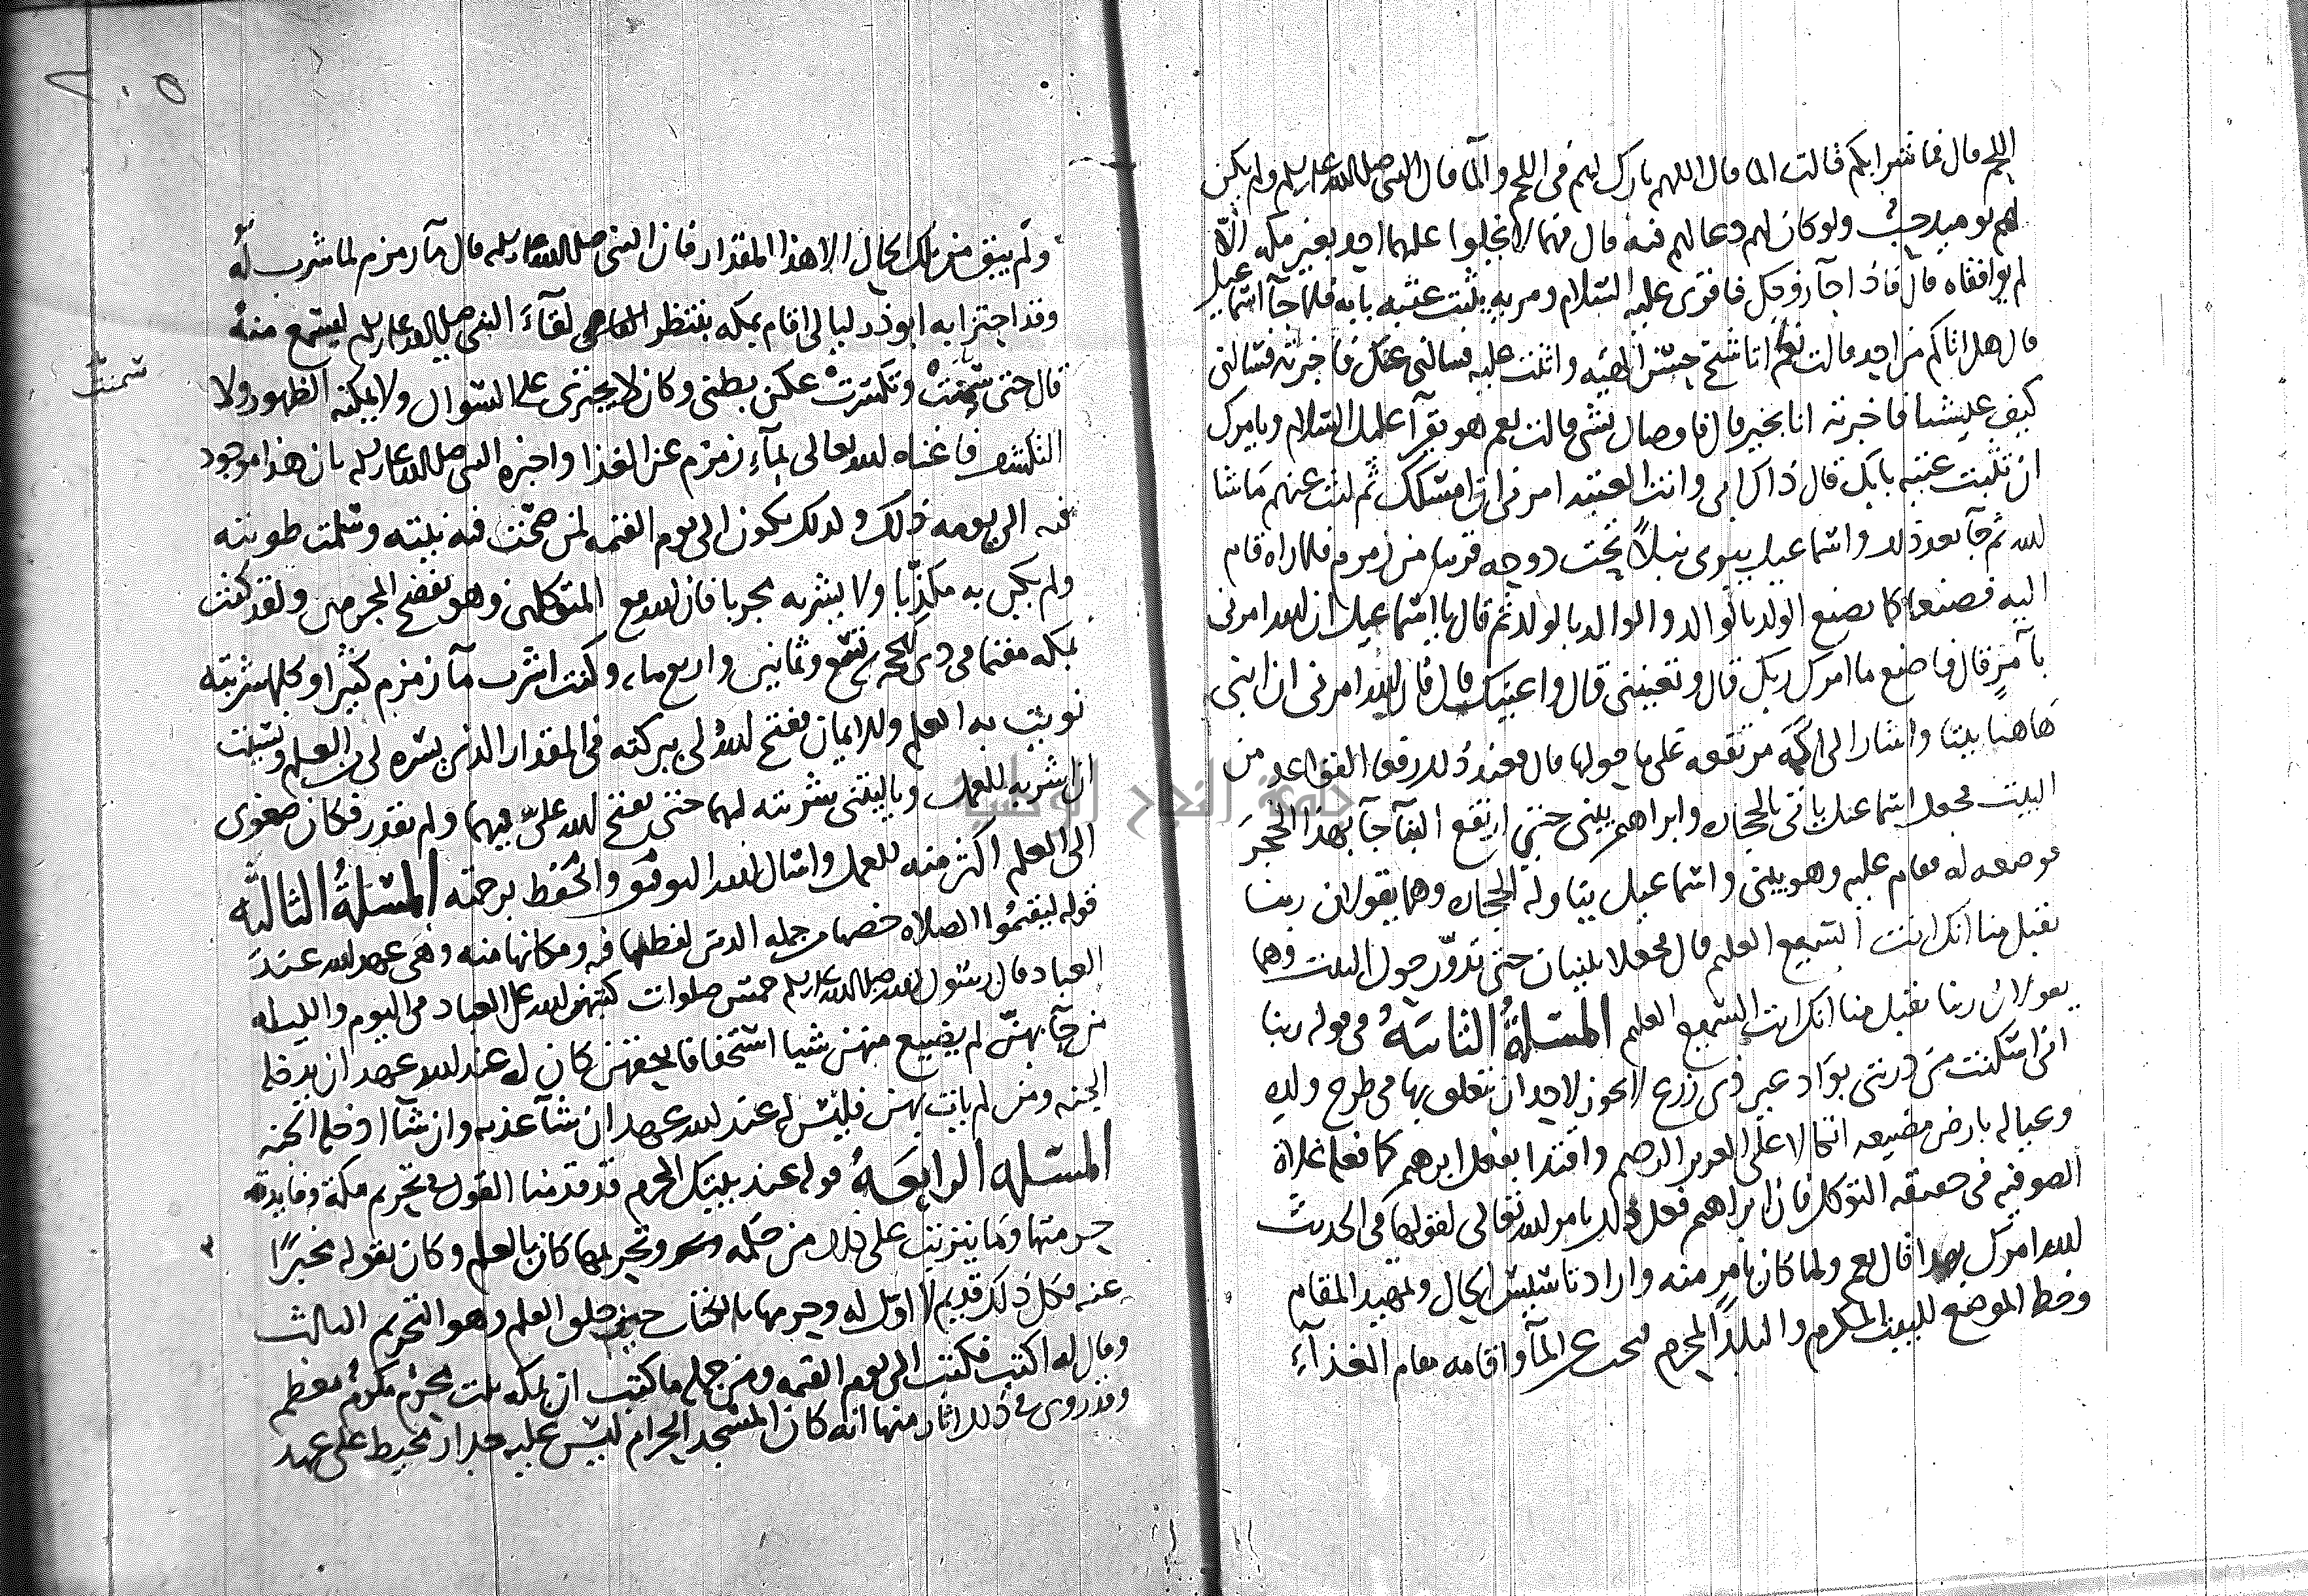 اللحم قال فما شرابكم قالت الما قال اللهم بارك لهم في اللحم والما قال النبي صلى الله عليه وسلم ولم يكن
لهم يوميذ حب ولو كان لهم دعا لهم فيه قال فهما لا يخلوا عليهما احد بغير مكه الا
لم يوافقاه قال فاذا جآ زوجك فاقري عليه السلام ومريه يثبت عتبه بابه فلما جآ اسماعيل
قال هل اتاكم من احد قالت نعم اتانا شيخ حسن الهيه واثنت عليه فسالني عنك فاخبرته فسالني
كيف عيشنا فاخبرته انا بخير قال فاوصاك بشي قالت نعم هو يقرآ عليك السلام ويامرك
ان تثبت عتبه بابك قال ذاك ابي وانت العتبه امرني ان امسكك ثم لبث عنهم ما شا
الله ثم جآ بعد ذلك واسماعيل يبري نبلاً تحت دوحه قريبا من زمزم فلما راه قام
اليه فصنعا كما يصنع الولد بالوالد والوالد بالولد ثم قال يا اسماعيل ان الله امرني
بآمرٍ قال فاصنع ما امرك ربك قال وتعينني قال واعينك قال فان الله امرني ان ابني
هاهنا بيتا واشار الى اكمه مرتفعه على ما حولها قال فعند ذلك رفعا القواعد من
البيت فجعل اسماعيل ياتي بالحجاره وابراهيم يبني حتى ارتفع البنآ جآ بهذا الحجر
فوضعه له فقام عليه وهو يبني واسماعيل يناوله الحجاره وهما يقولان ربنا
تقبل منا انك انت السميع العليم قال فجعلا يبنيان حتى تدوّر حول البيت وهما
يقولان ربنا تقبل منا انك انت السميع العليم المسلةُ الثانيهُ في قوله ربنا
اني اسكنت من ذريتي بواد غير ذي زرع لا يجوز لاحد ان يتعلق بها في طرح ولده
وعياله بارض مضيعه اتكالا على العزيز الرحيم واقتدا بفعل ابرهيم كما فعله غلاة
الصوفيه في حقيقه التوكل فان ابراهيم فعل ذلك بامر الله تعالى لقولها في الحديث
الله امرك بهذا قال نعم ولما كان بامر منه وارادتا تاسيس الحال وتمهيد المقام
وخط الموضع للبيت المكرم والبلد المحرم الما واقامه مقام الغذآءِ
ولم يبق من تلك الحال الا هذا المقدار فان النبي صلى الله عليه وسلم قال مآ زمزم لما شرب له
وقد اجتزا به ابو ذر ليالي اقام بمكه ينتظر لقآءَ النبي صلى الله عليه وسلم ليستمع منه
قال حتى سمنت وتكسرت عكن بطني وكان لا يجتري على السوال ولا يمكنه الظهور ولا
التكشف فاغناه الله تعالى بمآءِ زمزم عن الغذا واخبره النبي صلى الله عليه وسلم بان هذا موجود
سمنت
فيه الى يومه ذلك وكذلك يكون الى يوم القيمه لمن صحت فيه نيته وسلمت طويته
ولم يكن به مكذّبا ولا يشربه مجربا فان الله مع المتوكلين وهو يفضح المجربين ولقد كنت
بمكه مقيما في ذي الحجه سنه تسع وثمانين واربع مايه وكنت اشرب مآ زمزم كثيرا وكلما شربته
نويت به العلم والايمان ففتح الله لي ببركته في المقدار الذي يسره لي من العلم ونسيت
ان اشربه للعمل وياليتني شربته لهما حتى يفتح الله عليّ فيهما ولم يقدر فكان صغوي
الى العلم اكثر منه للعمل واسال الله التوفيق والحفظ برحمته المسلةُ الثالثه
قوله ليقيموا الصلاه خصها من جمله الدين لفضلها فيه ومكانها منه وهي عهد الله عند
العباد قال رسول الله صلى الله عليه وسلم خمس صلوات كتبهن الله على العباد في اليوم والليله
من جآ بهنّ لم يضيع منهن شيا استخفافا بحقهن كان له عند الله عهد ان يدخله
الجنه ومن لم يات بهن فليس له عند الله عهد ان شآ عذبه وان شآ ادخله الجنه
المسله الرابعهُ قوله عند بيتك المحرم قد قدمنا القول في تحريم مكة وفايدة
حرمتها وما يترتب على ذلك من حكمه وتحريمها كان بالعلم وكان بقوله مخبرًا
عنه فكل ذلك قديم لا اوّل له وحرمها بالكتاب حين خلق العلم وهو التحريم الثالث
وقال له اكتب فكتب الى يوم القيمه ومن جمله ما كتب ان بمكه بيت محرم مكرم معظم
وقد روي في ذلك اثار منها انه كان المسجد الحرام ليس عليه جدار محيط على عهد